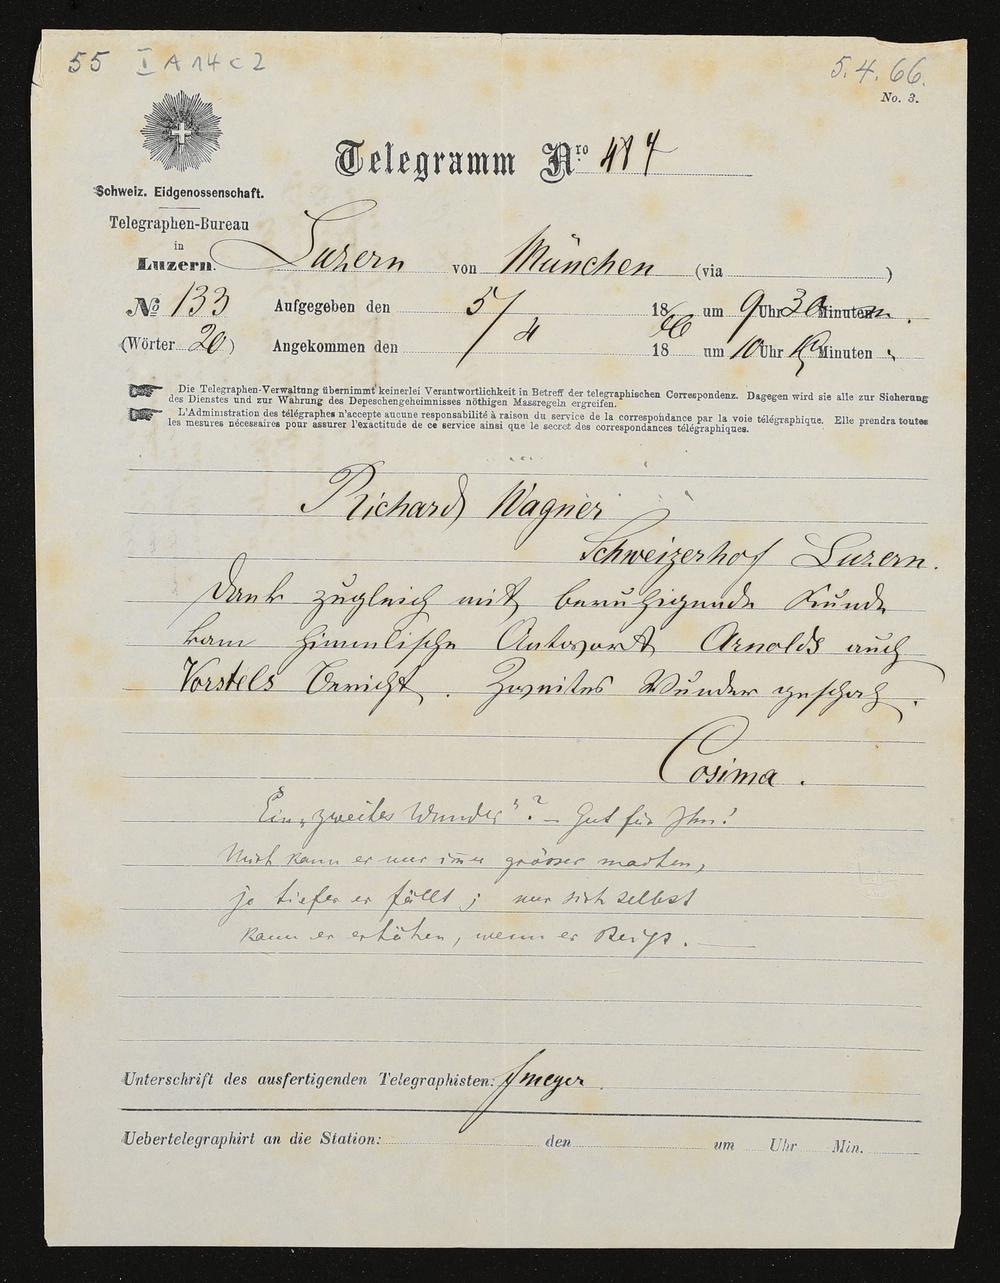 55 I A 14 c 2
5.4.66.
No. 3.
Telegramm Nro 484
Schweiz. Eidgenossenschaft.
Telegraphen-Bureau
in
Luzern.
Luzern von München (via )
No 133 Aufgegeben den 5/4 1866 um 9 Uhr 30 Minuten m.
(Wörter 20) Angekommen den 18 um 10 Uhr Minuten
Die Telegraphen-Verwaltung übernimmt keinerlei Verantwortlichkeit in Betreff der telegraphischen Correspondenz. Dagegen wird sie alle zur Sicherung
des Dienstes und zur Wahrung des Depeschengeheimnisses nöthigen Massregeln ergreifen.
L'Administration des télégraphes n'accepte aucune responsabilité à raison du service de la correspondance par la voie télégraphique. Elle prendra toutes
les mesures nécessaires pour assurer l'exactitude de ce service ainsi que le secret des correspondances télégraphiques.
Richard Wagner
Schweizerhof Luzern.
Dank zugleich mit beruhigende Kunde
kam himmlische Antwort Arnolds auch
Vorstels Bericht. Zweites Wunder geschah.
Cosima.
Ein „zweites Wunder"? – Gut für Ihn!
Mich kann er nur immer grösser machen,
je tiefer er fällt; nur sich selbst
kann er erhöhen, wenn er steigt. —
Unterschrift des ausfertigenden Telegraphisten: Jmeyer
Uebertelegraphirt an die Station: den um Uhr Min.